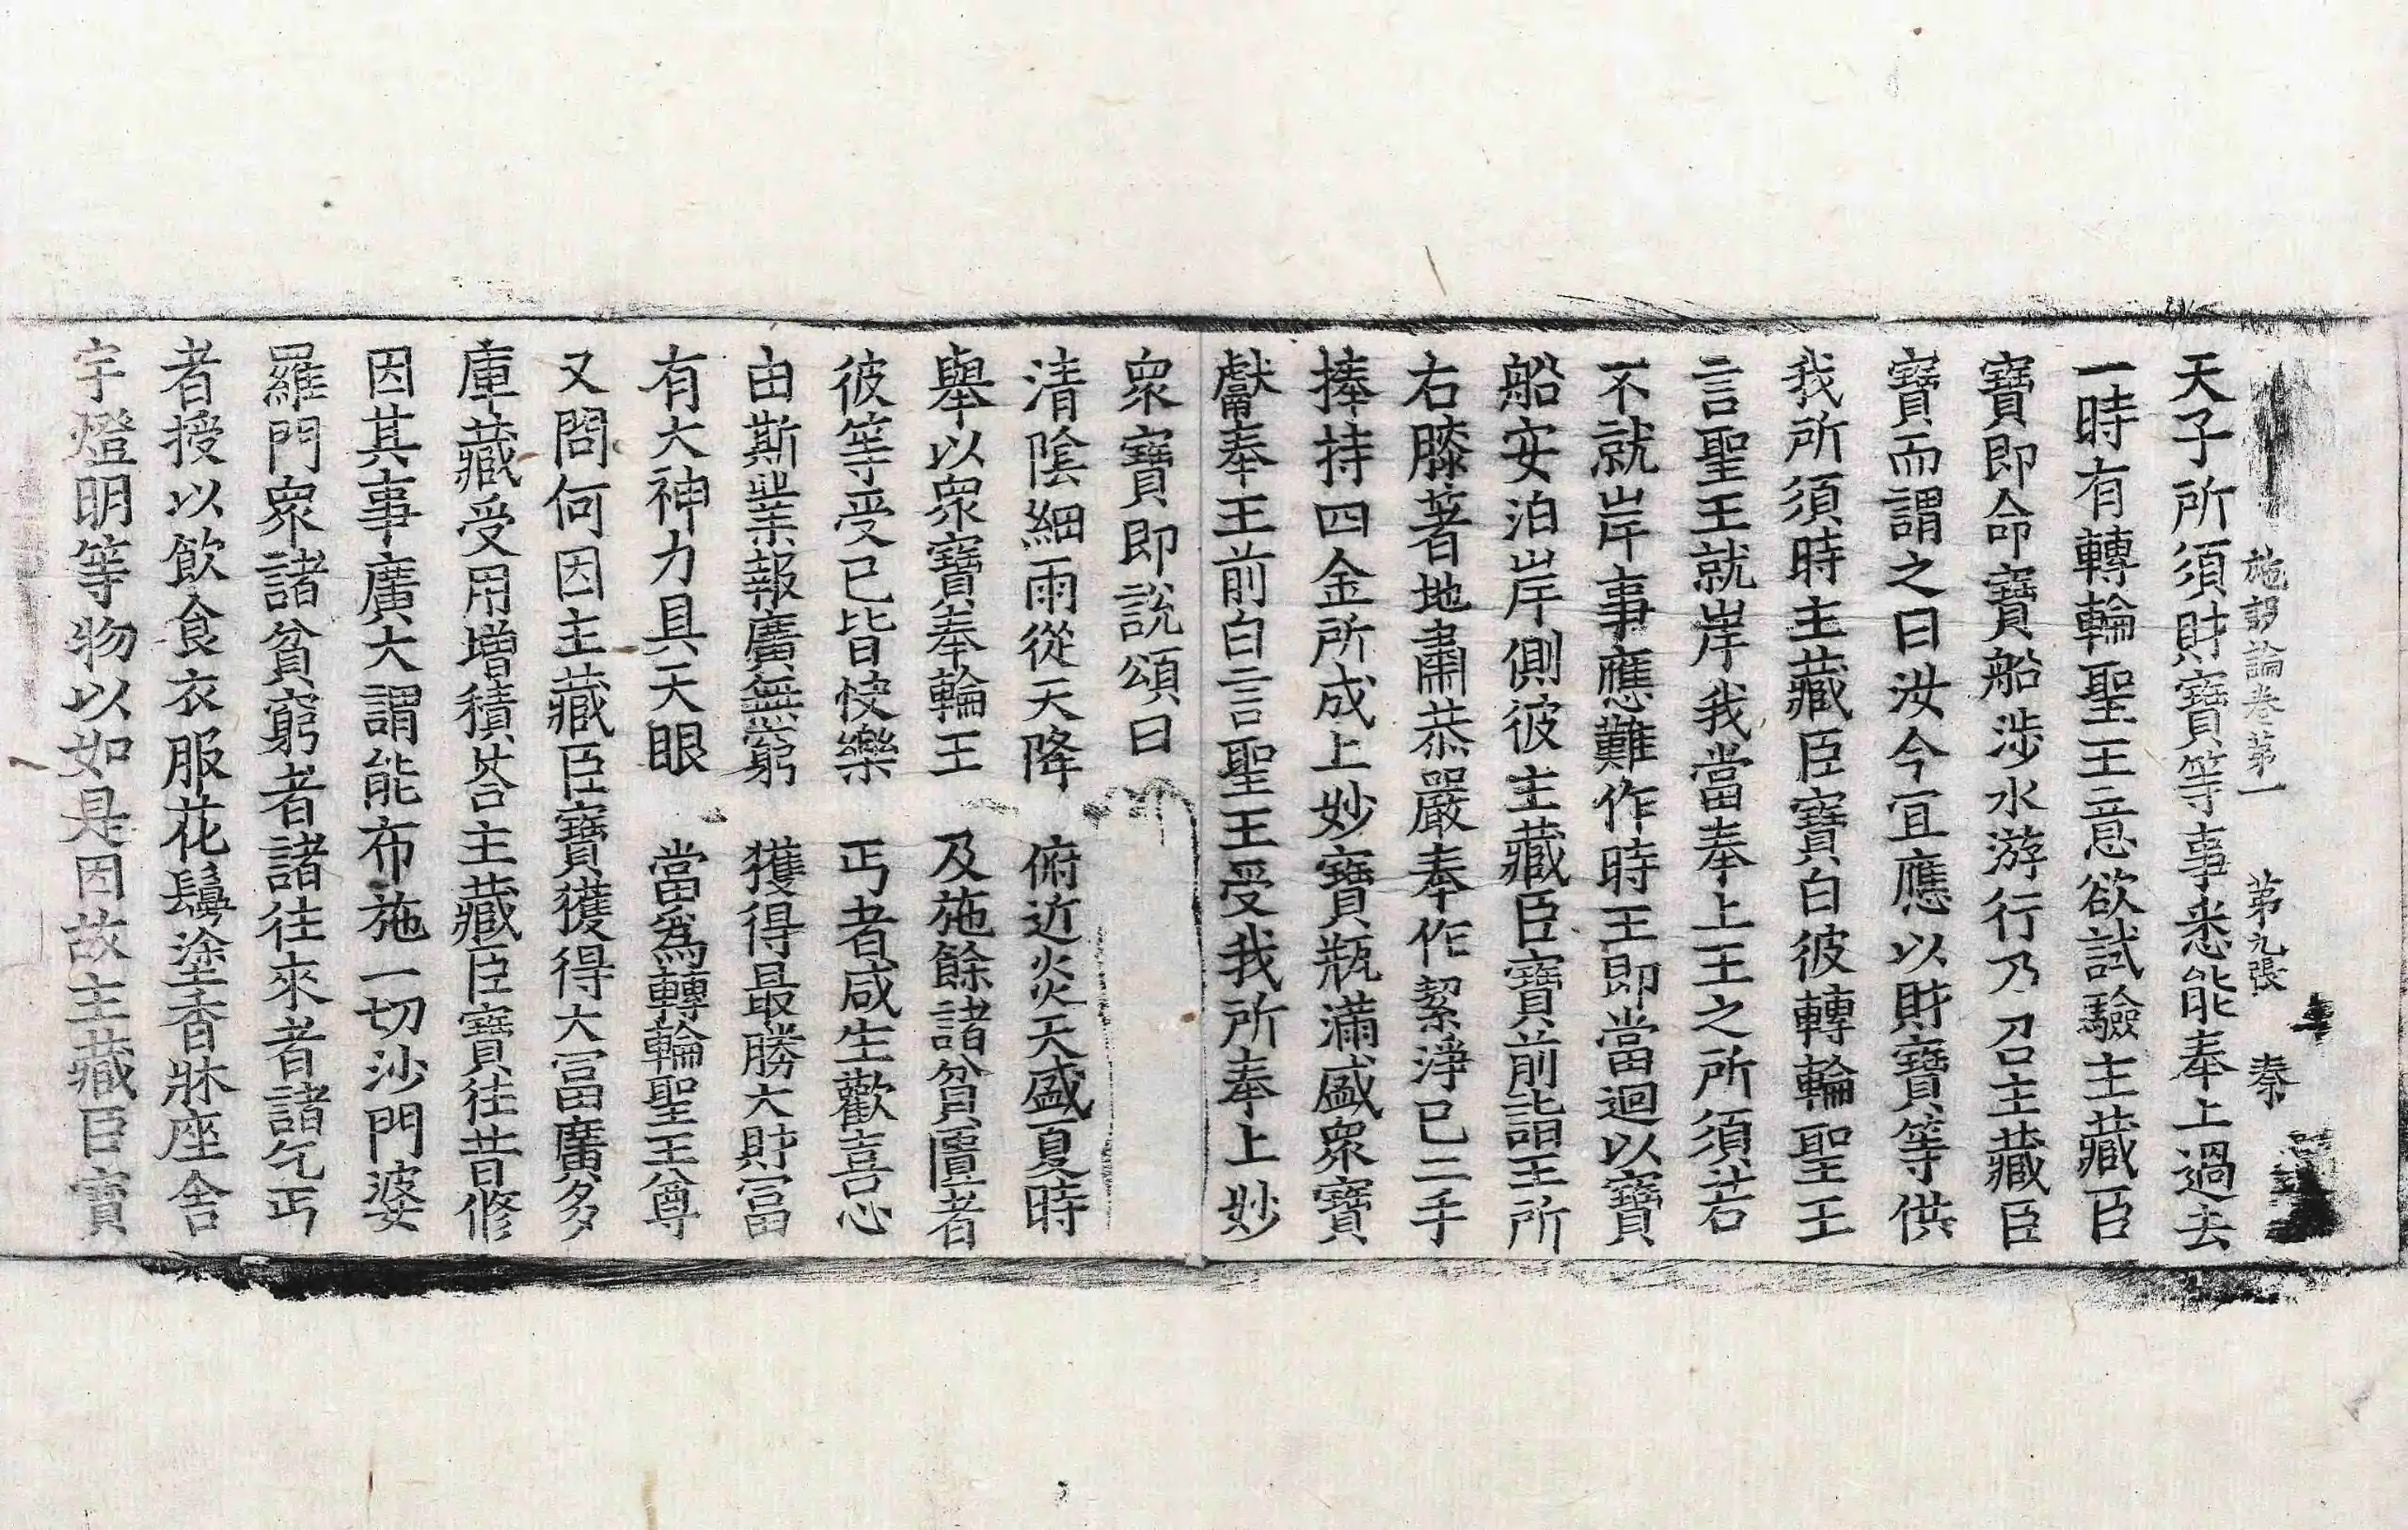 施設論卷第一　第九張　秦
天子所須財寶等事悉能奉上過去
一時有轉輪聖王意欲試驗主藏臣
寶即命寶船涉水游行乃召主藏臣
寶而謂之曰汝今宜應以財寶等供
我所須時主藏臣寶白彼轉輪聖王
言聖王就岸我當奉上王之所須若
不就岸事應難作時王即當迴以寶
船安泊岸側彼主藏臣寶前詣王所
右膝著地肅恭嚴奉作絜淨已二手
捧持四金所成上妙寶瓶滿盛衆寶
獻奉王前白言聖王受我所奉上妙
衆寶即說頌曰
清陰細雨從天降　俯近炎天盛夏時
舉以衆寶奉輪王　及施餘諸貧匱者
彼等受已皆快樂　丐者咸生歡喜心
由斯業報廣無窮　獲得最勝大財冨
有大神力具天眼　當爲轉輪聖王尊
又問何因主藏臣寶獲得大冨廣多
庫藏受用增積荅主藏臣寶往昔修
因其事廣大謂能布施一切沙門婆
羅門衆諸貧窮者諸往來者諸乞丐
者授以飲食衣服花鬘塗香牀座舍
宇燈明等物以如是因故主藏臣寶